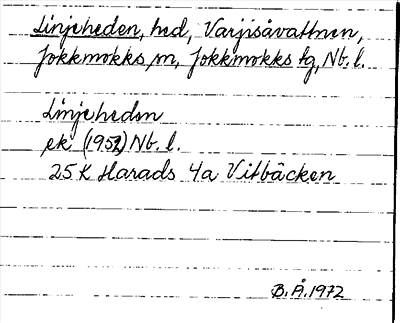 Linjeheden, hed, Varjisåvattnen,
Jokkmokks sn, Jokkmokks tg, Nb. l.
Linjeheden
ek (1952) Nb. l.
25 K Harads 4a Vitbäcken
B.Å. 1972